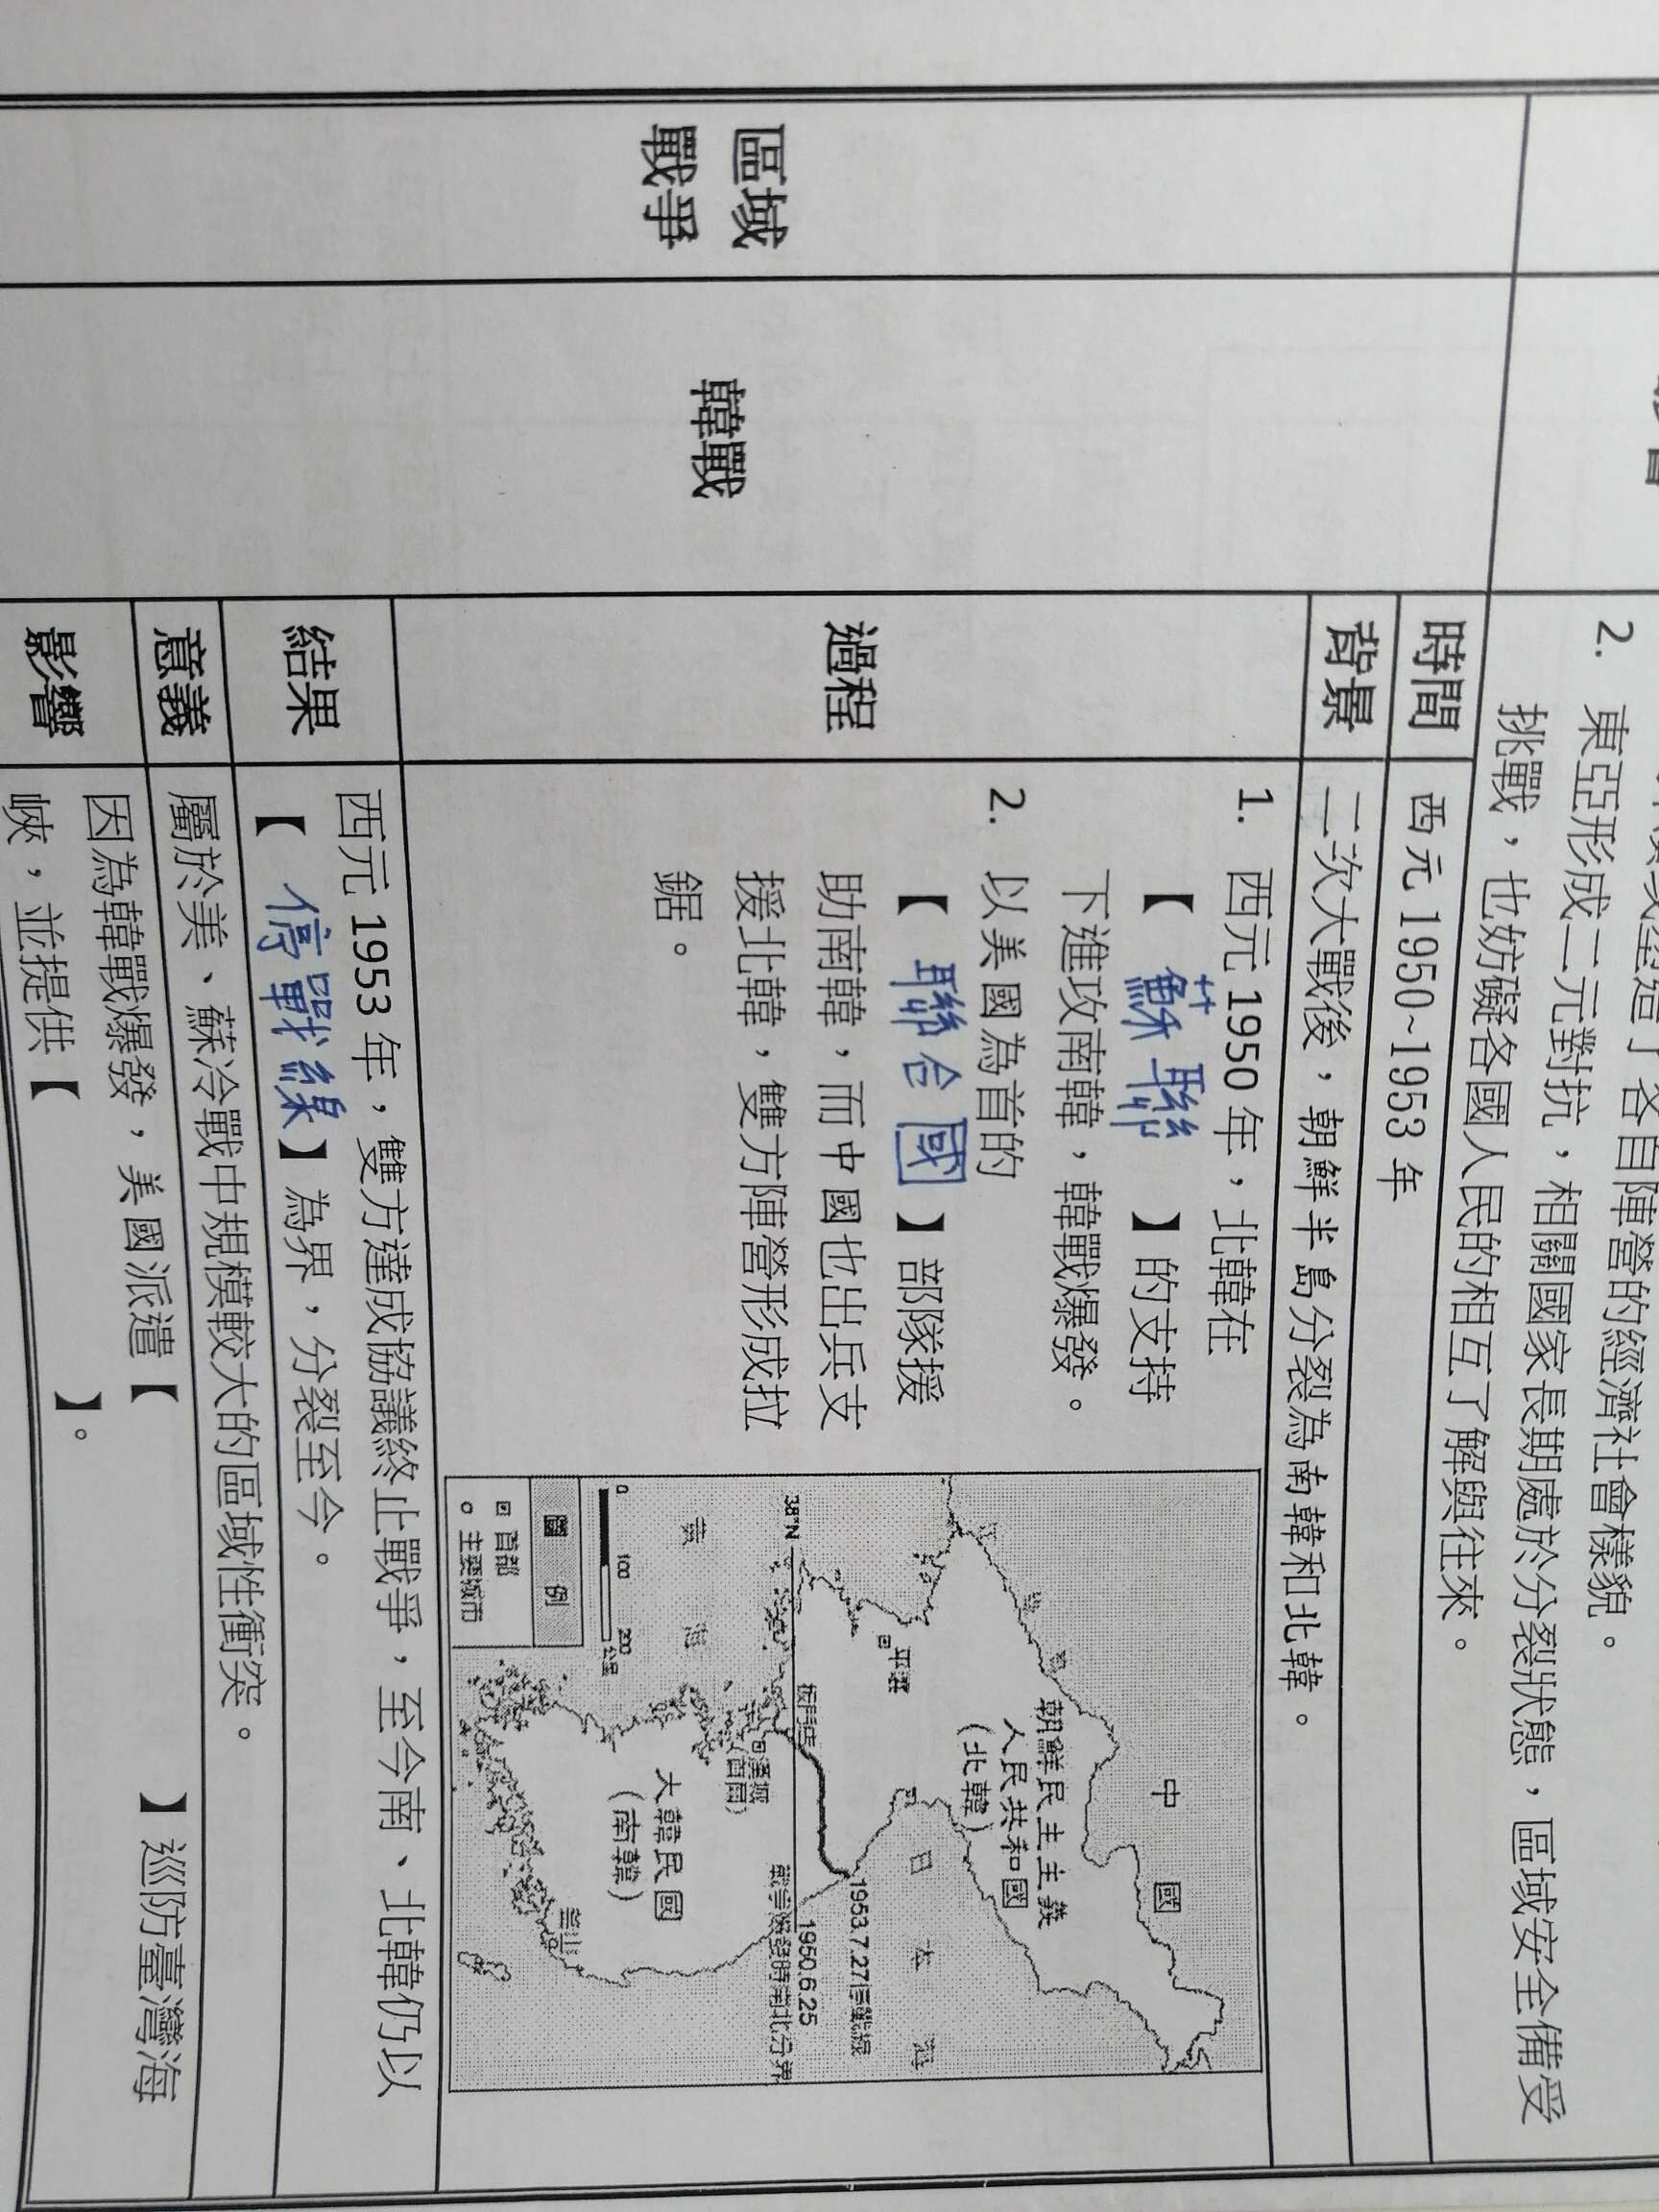 2. 東亞形成二元對抗，相關國家長期處於分裂狀態，區域安全備受
挑戰，也妨礙各國人民的相互了解與往來。
區域
戰爭
韓戰
時間
西元 1950~1953 年
背景
二次大戰後，朝鮮半島分裂為南韓和北韓。
過程
1. 西元 1950 年，北韓在
【 蘇聯 】的支持
下進攻南韓，韓戰爆發。
2. 以美國為首的
【 聯合國 】部隊援
助南韓，而中國也出兵支
援北韓，雙方陣營形成拉
鋸。
中國
朝鮮民主主義
人民共和國
(北韓)
日本海
平壤
1953.7.27停戰線
板門店
38°N
1950.6.25
戰爭爆發時南北分界
漢城
(首爾)
黃海
大韓民國
(南韓)
0 100 200 公里
釜山
圖例
首部
主要城市
結果
西元 1953 年，雙方達成協議終止戰爭，至今南、北韓仍以
【 停戰線】為界，分裂至今。
意義
屬於美、蘇冷戰中規模較大的區域性衝突。
影響
因為韓戰爆發，美國派遣【 】巡防臺灣海
峽，並提供【 】。